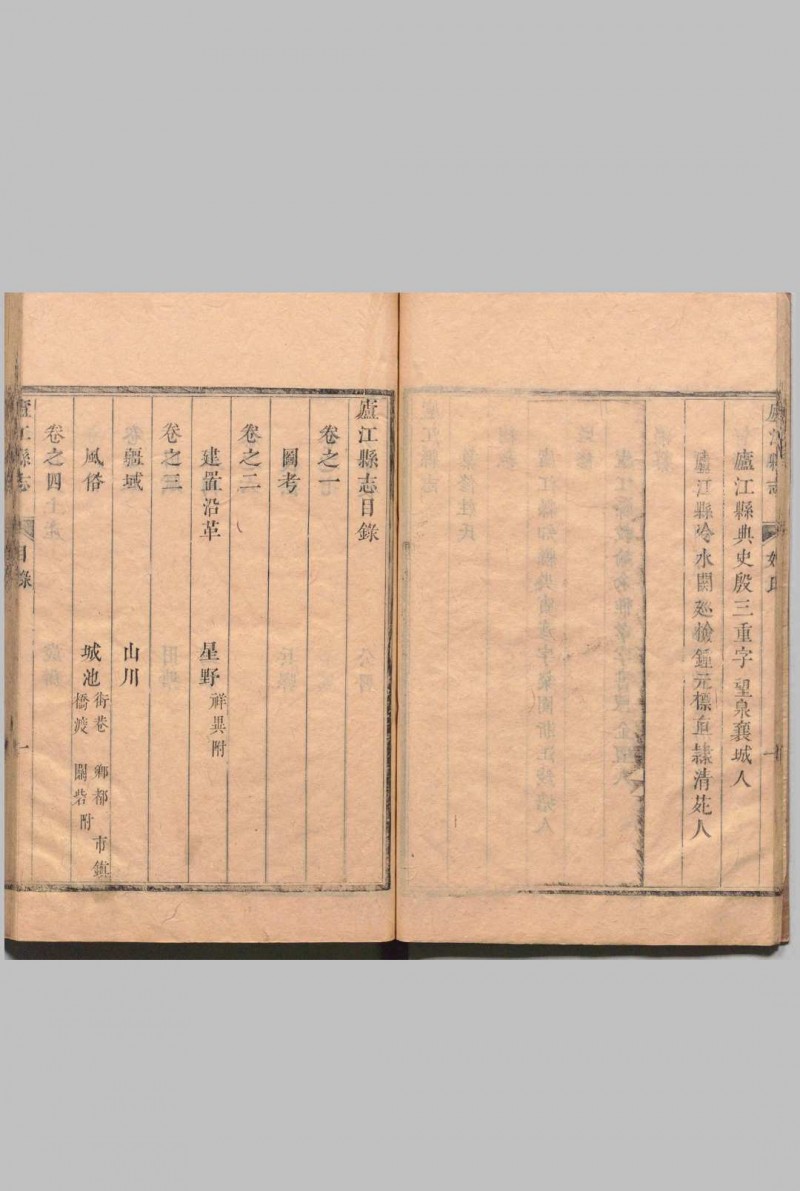 廬江縣典史殷三重字望泉襄城人
廬江縣冷水關廵檢鍾元標直隸清苑人
廬江縣志目錄
卷之一
圖考
卷之二
建置沿革 星野 祥異附
卷之三
疆域 山川
風俗 城池 街巷 鄉都 市鎮 橋渡 關砦附
卷之四
廬江縣志 目錄 一